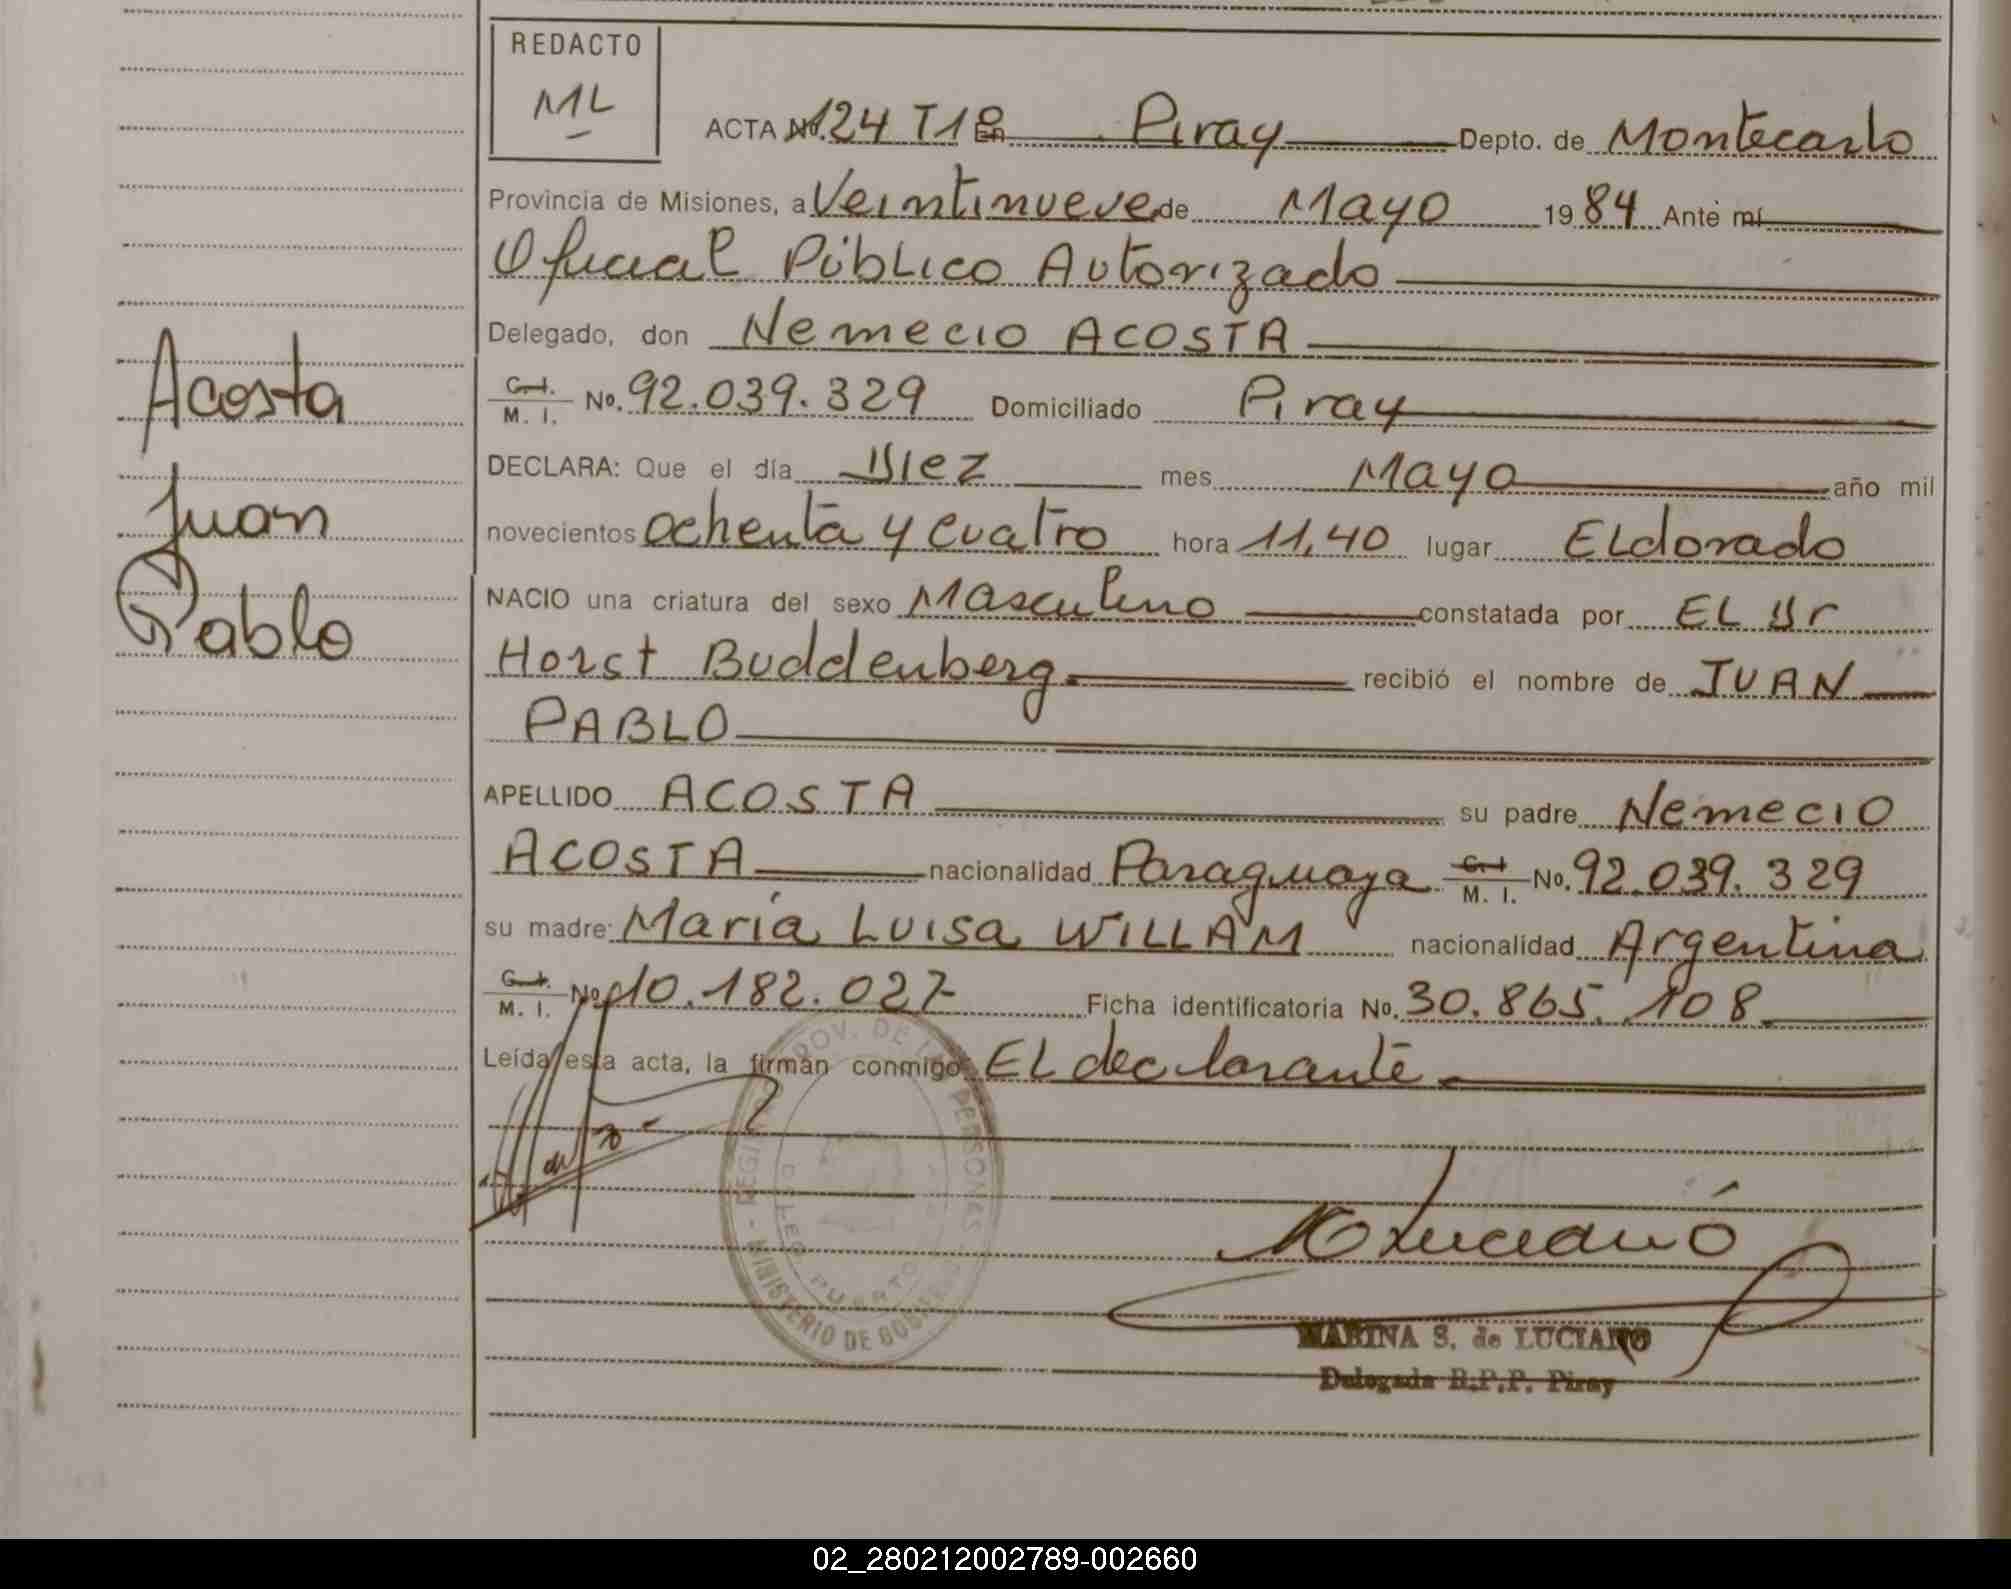 REDACTO
ML
ACTA No. 124 T1º En Piray Depto. de Montecarlo
Provincia de Misiones, a Veintinueve de Mayo 1984 Ante mí
Oficial Público Autorizado
Delegado, don Nemecio ACOSTA
C. I. M. I. No. 92.039.329 Domiciliado Piray
DECLARA: Que el día Diez mes Mayo año mil
novecientos ochenta y cuatro hora 11,40 lugar ELdorado
NACIO una criatura del sexo Masculino constatada por EL Dr
Horst Buddenberg recibió el nombre de JUAN
PABLO
APELLIDO ACOSTA su padre Nemecio
ACOSTA nacionalidad Paraguaya C. I. M. I. No. 92.039.329
su madre: María Luisa WILLAM nacionalidad Argentina
C. I. M. I. No. 10.182.027 Ficha identificatoria No. 30.865.108
Leída esta acta, la firman conmigo EL declarante
Acosta
Juan
Pablo
MINISTERIO DE GOBIERNO
MARINA S. de LUCIANO
Delegada R.P.P. Piray
02_280212002789-002660